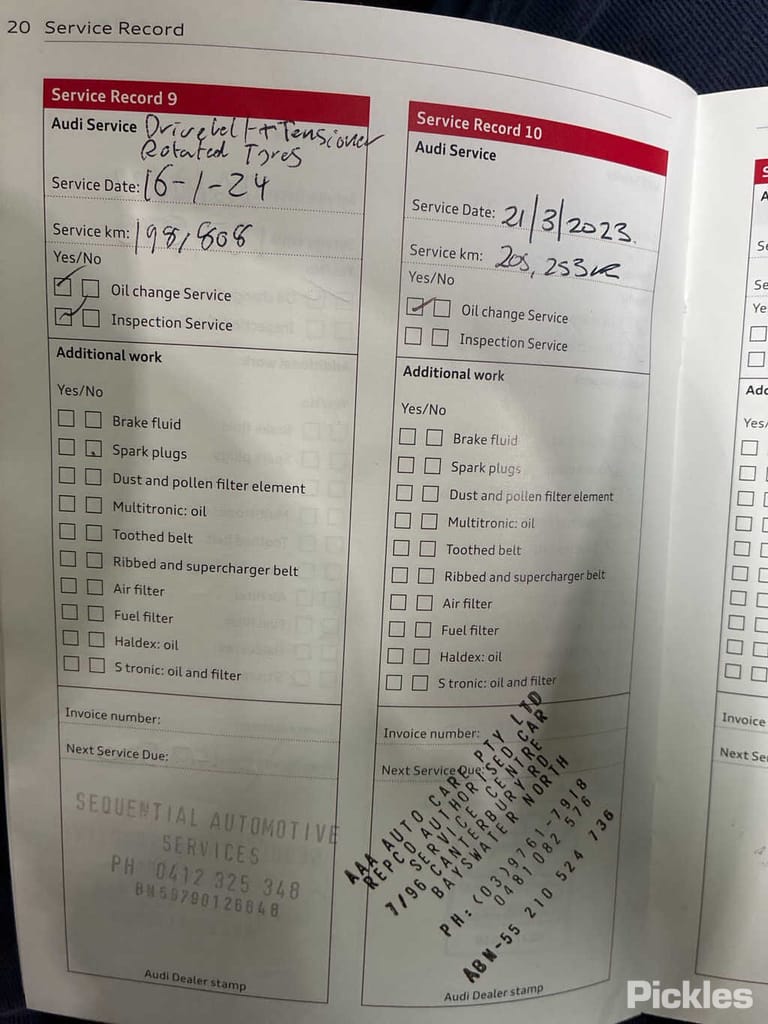 20 Service Record
Service Record 9
Audi Service Drivebelt + Tensioner
Rotated Tyres
Service Date: 16-1-24
Service km: 198,808
Yes/No
Oil change Service
Inspection Service
Additional work
Yes/No
Brake fluid
Spark plugs
Dust and pollen filter element
Multitronic: oil
Toothed belt
Ribbed and supercharger belt
Air filter
Fuel filter
Haldex: oil
S tronic: oil and filter
Invoice number:
Next Service Due:
SEQUENTIAL AUTOMOTIVE
SERVICES
PH 0412 325 348
Audi Dealer stamp
Service Record 10
Audi Service
Service Date: 21/3/2023.
Service km: 205,253
Yes/No
Oil change Service
Inspection Service
Additional work
Yes/No
Brake fluid
Spark plugs
Dust and pollen filter element
Multitronic: oil
Toothed belt
Ribbed and supercharger belt
Air filter
Fuel filter
Haldex: oil
S tronic: oil and filter
Invoice number:
Next Service Due:
AAA AUTO CARE PTY LTD
REPCO AUTHORISED CAR
SERVICE CENTRE
7/96 CANTERBURY RD,
BAYSWATER NORTH
PH: (03)9761-7918
0481 082 576
ABN-55 210 524 736
Audi Dealer stamp
Invoice
Pickles